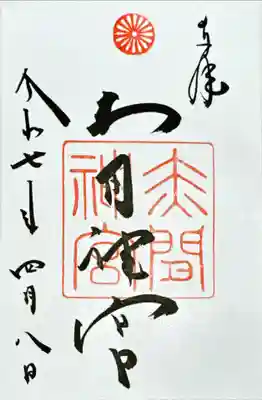 奉拝
赤間神宮
赤間
神宮
令和七年 四月八日